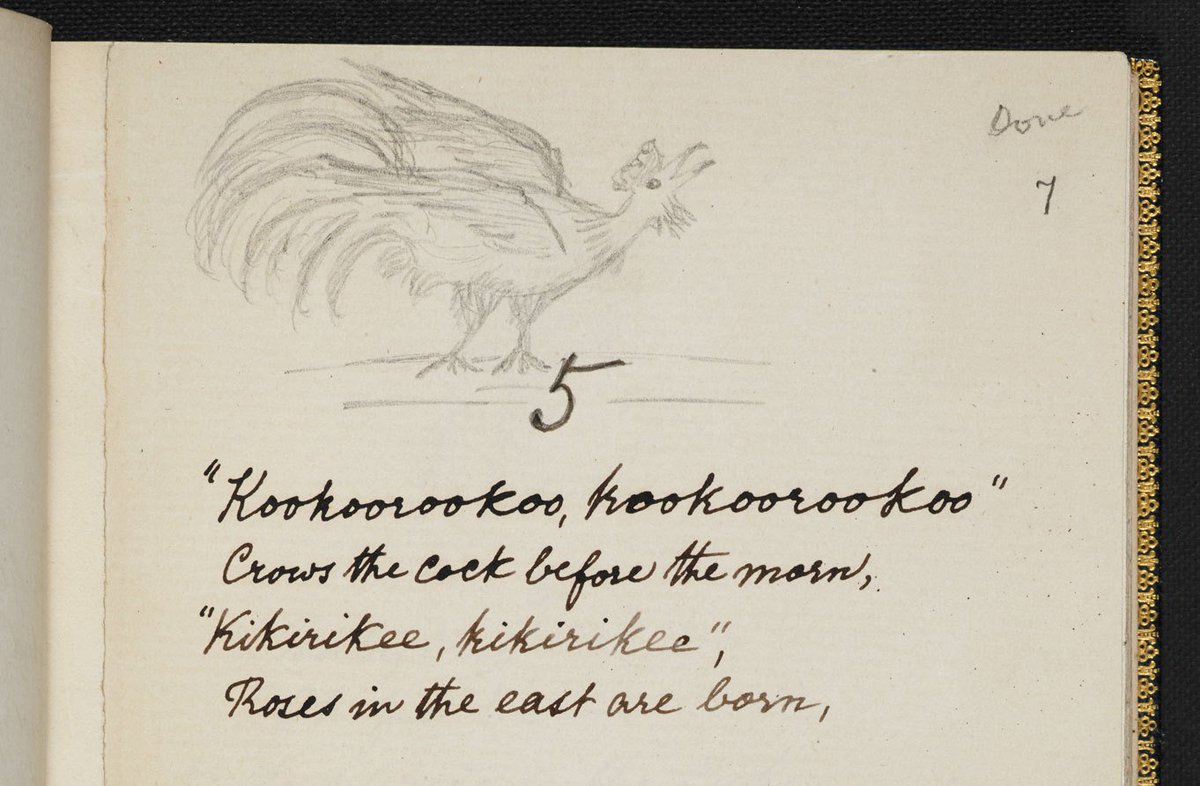 Done
7
5
"Kookoorookoo, kookoorookoo"
Crows the cock before the morn,
"Kikirikee, kikirikee",
Roses in the east are born,